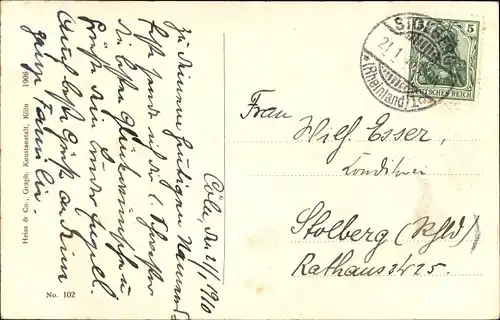 Cöln, den 21/1 1910
Zu Deinem heutigen Namens-
feste sende ich dir l. Schwester
die besten Glückwünsche u.
Auch beste Grüße an Deine
ganze Familie.
Heiss & Co., Graph. Kunstanstalt, Köln 1908
No. 102
STOLBERG
21.1
*(Rheinland)1
5
DEUTSCHES REICH
Frau
Wilh. Esser
Conditorei
Stolberg (Rhld)
Rathausstr 25.